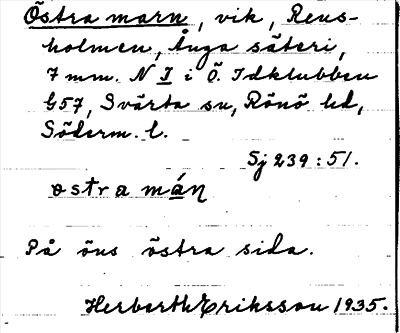 Östra marn, vik, Reus-
holmen, Ånga säteri,
7 mm. N I i Ö. Idklubben
G57, Svärta sn, Rönö hd,
Söderm. l.
Sj 239:51.
östra mán
På öns östra sida.
Herbert Eriksson 1935.